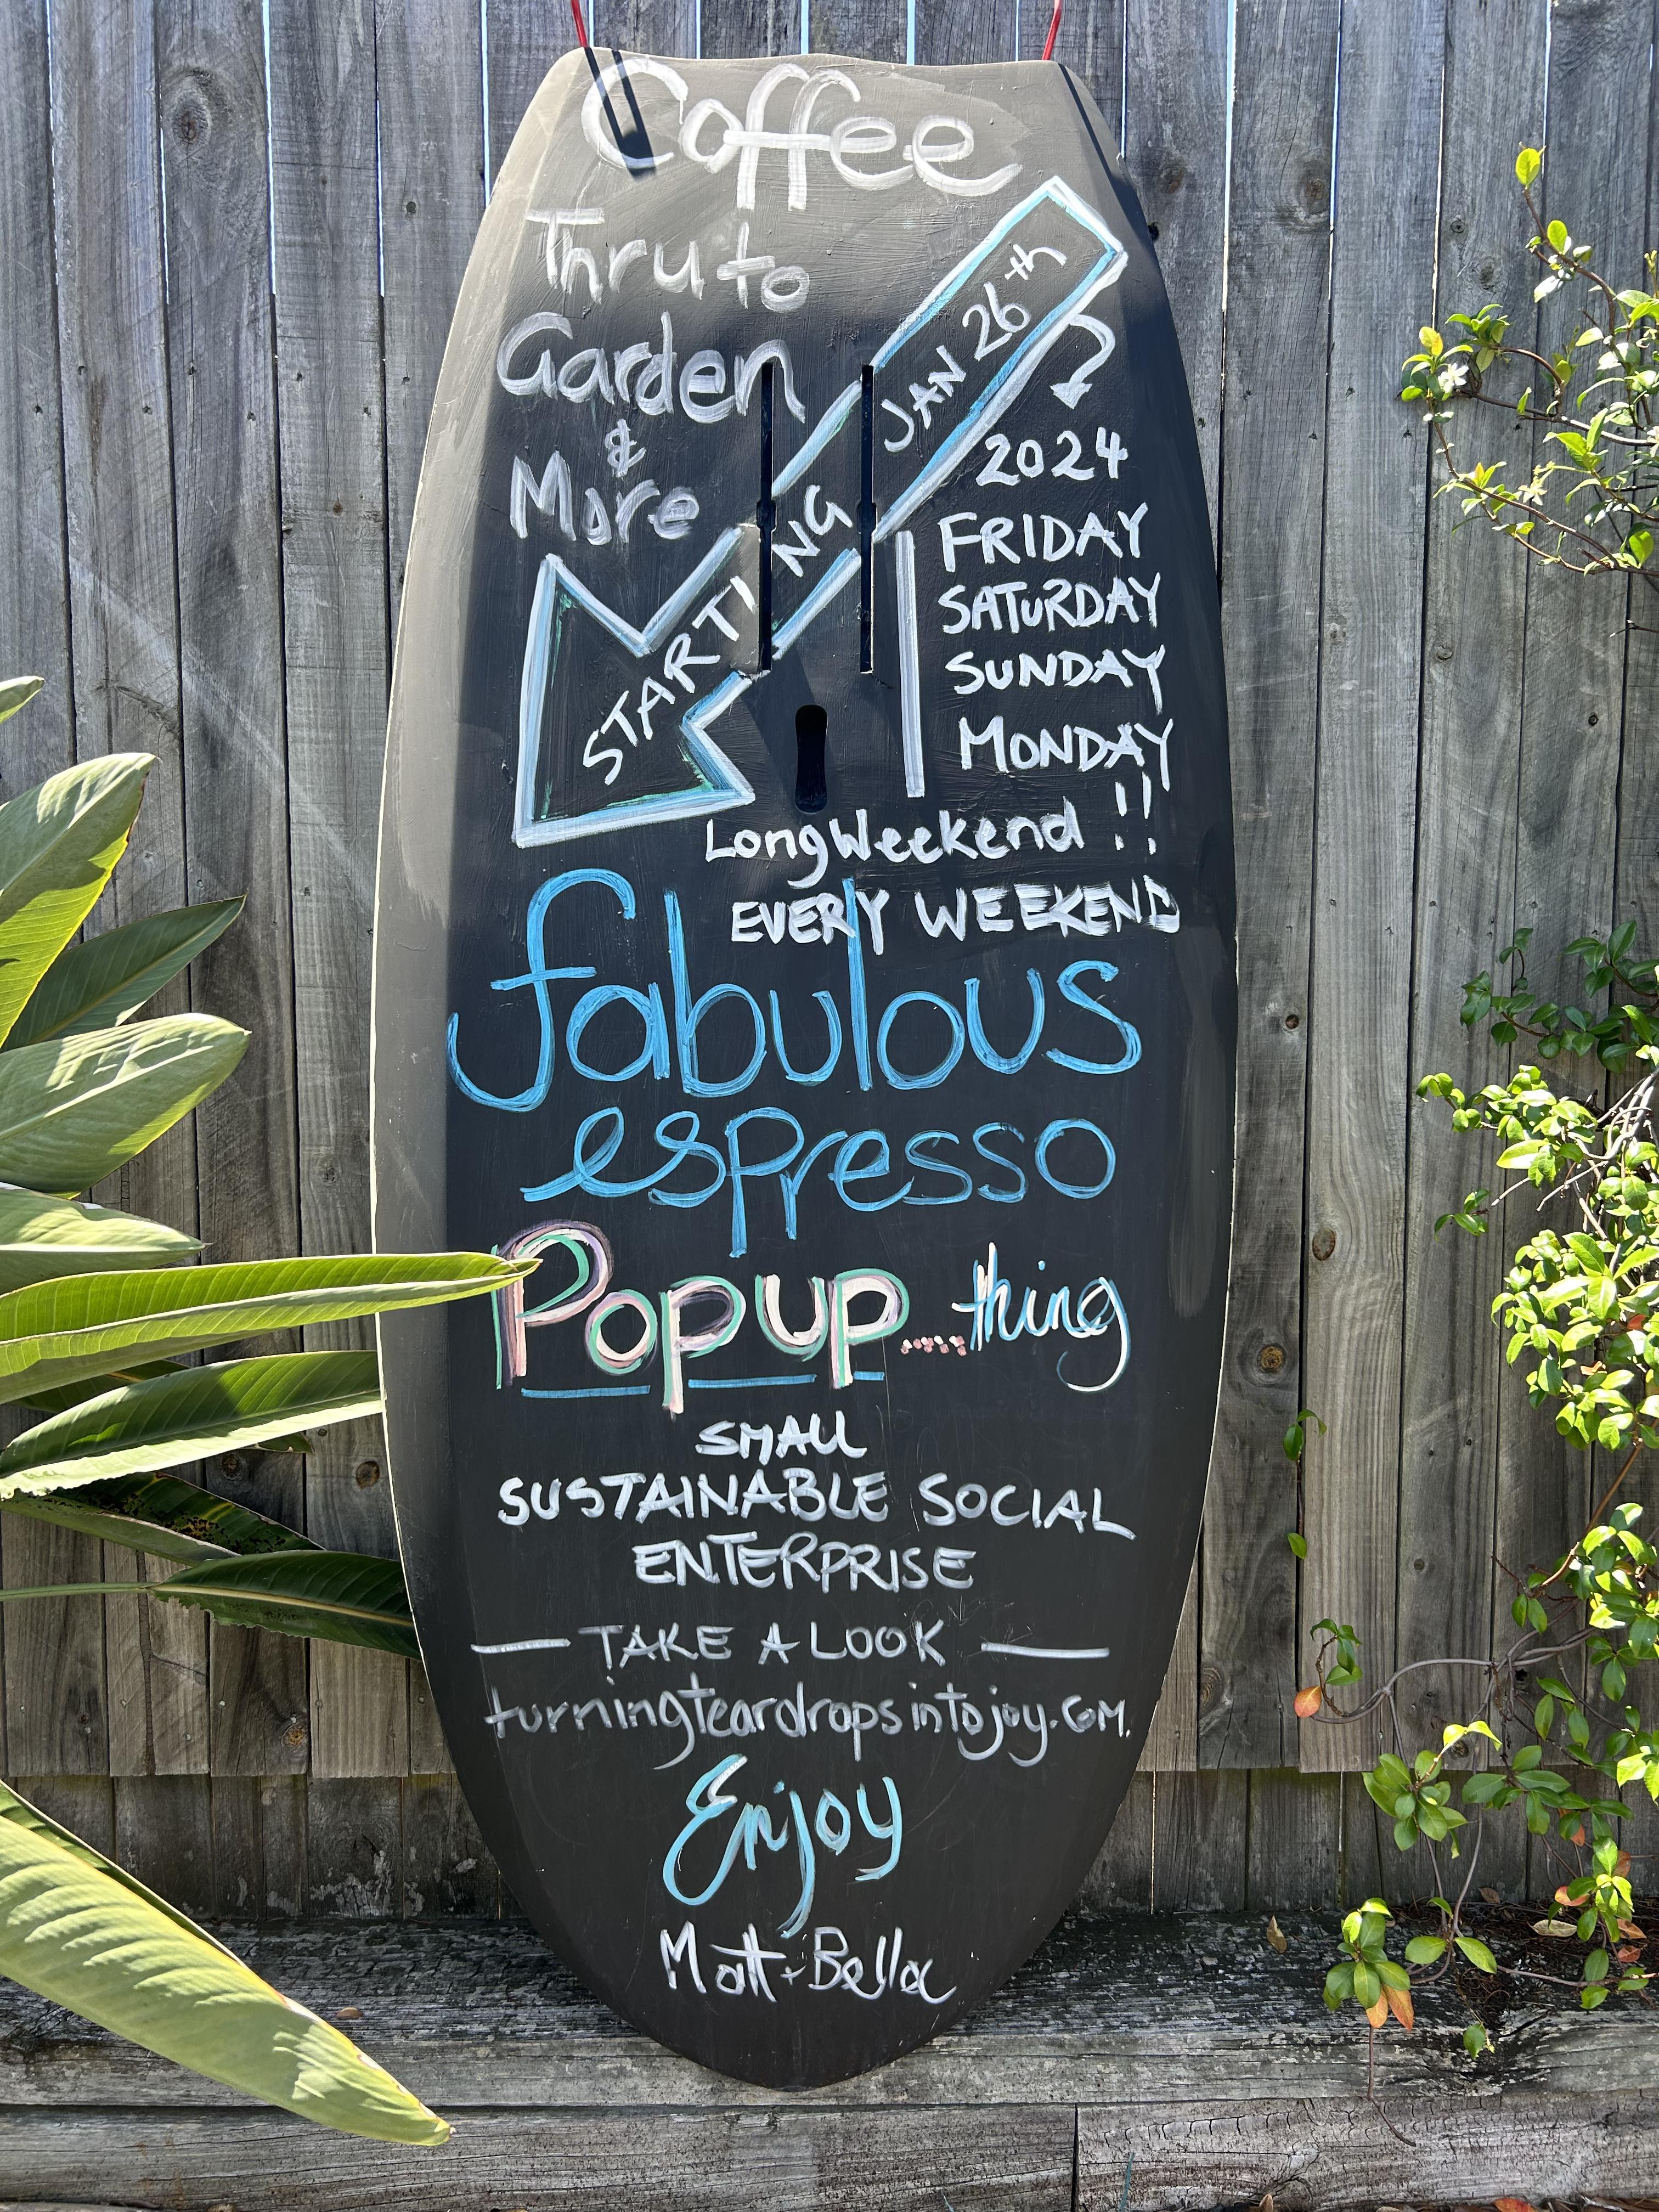 Coffee
Thru to
Garden
&
More
STARTING JAN 26th
2024
FRIDAY
SATURDAY
SUNDAY
MONDAY
Long Weekend !!
EVERY WEEKEND
fabulous
espresso
Popup....thing
SMALL
SUSTAINABLE SOCIAL
ENTERPRISE
— TAKE A LOOK —
turningteardropsintojoy.COM.
Enjoy
Matt + Bella